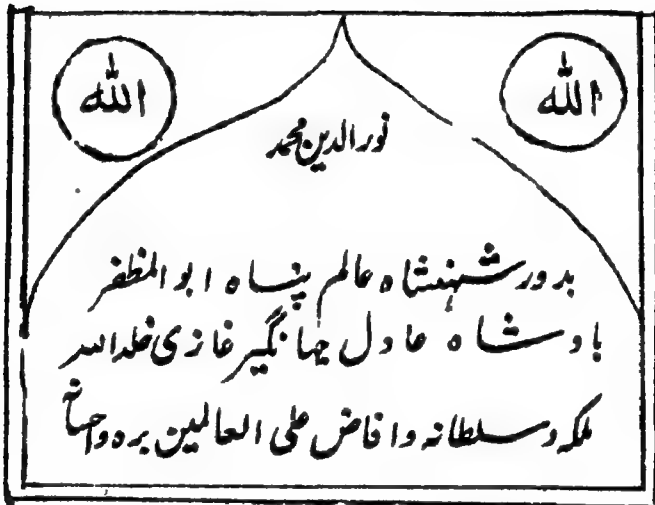 الله
الله
نور الدین محمد
بدور شہنشاہ عالم پناہ ابو المظفر
بادشاہ عادل جہانگیر غازی خلد اللہ
ملکہ وسلطانہ وافاض علی العالمین برہ واحسانہ